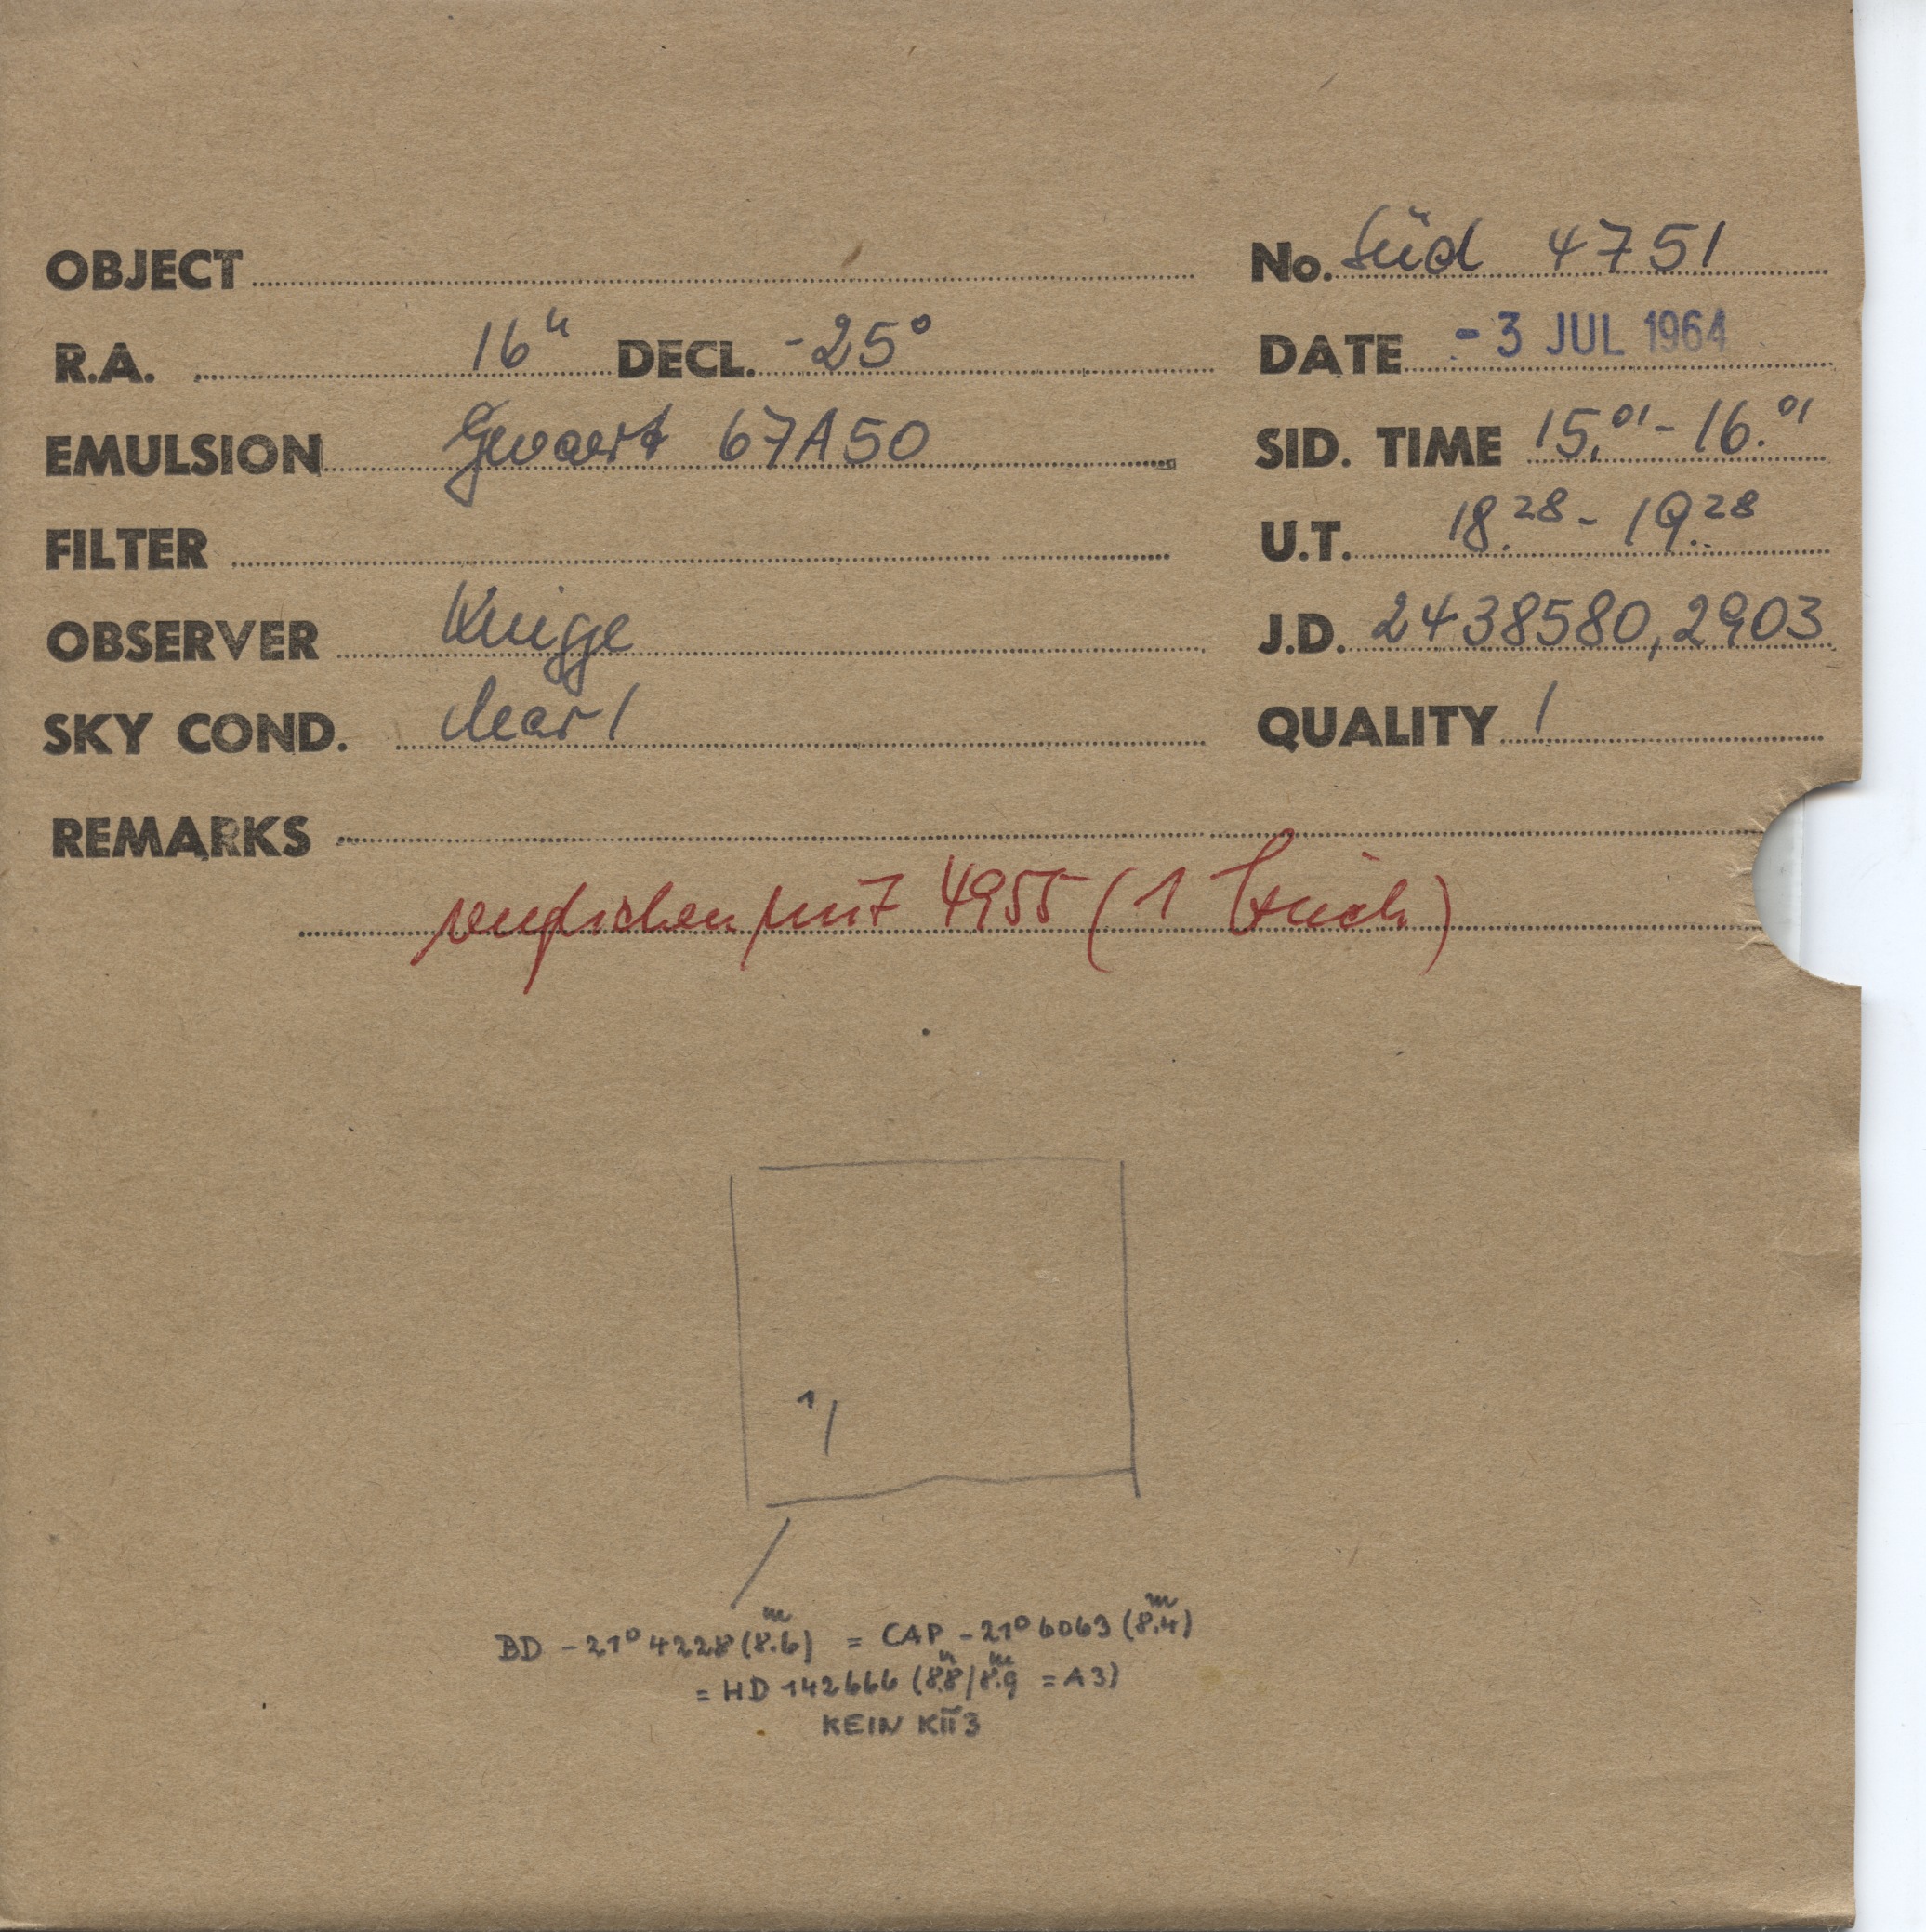 OBJECT
No. Süd 4751
R.A. 16h DECL. -25°
DATE -3 JUL 1964
EMULSION Gevaert 67A50
SID. TIME 15.01 - 16.01
FILTER
U.T. 18.28 - 19.28
OBSERVER Knigge
J.D. 2438580,2903
SKY COND. clear 1
QUALITY 1
REMARKS
verglichen mit 4955 (1 Strich)
1
BD -21° 4228 (8.6m) = CAP -21° 6063 (8.4m)
= HD 142666 (8.8m/8.9m = A3)
KEIN KII3